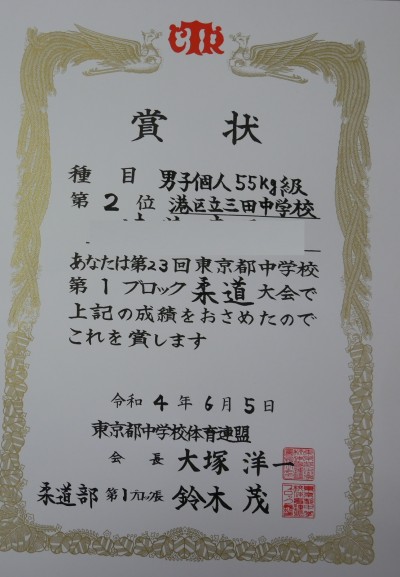 賞状
種目 男子個人55kg級
第2位 港区立三田中学校
あなたは第23回東京都中学校
第1ブロック柔道大会で
上記の成績をおさめたので
これを賞します
令和4年6月5日
東京都中学校体育連盟
会長 大塚洋一
柔道部 第1ブロック長 鈴木茂